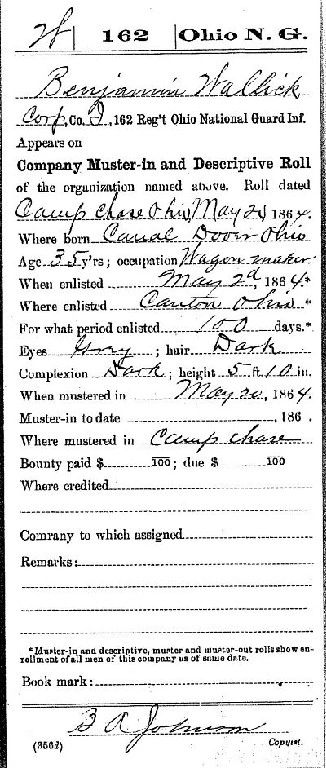 W | 162 | Ohio N. G.
Benjamin Wallick
Corp, Co. I, 162 Reg't Ohio National Guard Inf.
Appears on
Company Muster-in and Descriptive Roll
of the organization named above. Roll dated
Camp Chase Ohio, May 20, 1864.
Where born Canal Dover Ohio
Age 35 y'rs; occupation Wagon maker
When enlisted May 2d, 1864*
Where enlisted Canton Ohio *
For what period enlisted 100 days.*
Eyes Grey ; hair Dark
Complexion Dark ; height 5 ft 10 in.
When mustered in May 20, 1864.
Muster-in to date , 186 .
Where mustered in Camp Chase
Bounty paid $ 100; due $ 100
Where credited
Company to which assigned
Remarks:
*Muster-in and descriptive, muster and muster-out rolls show en-
rollment of all men of this company as of same date.
Book mark:
B A Johnson
(356) Copyist.